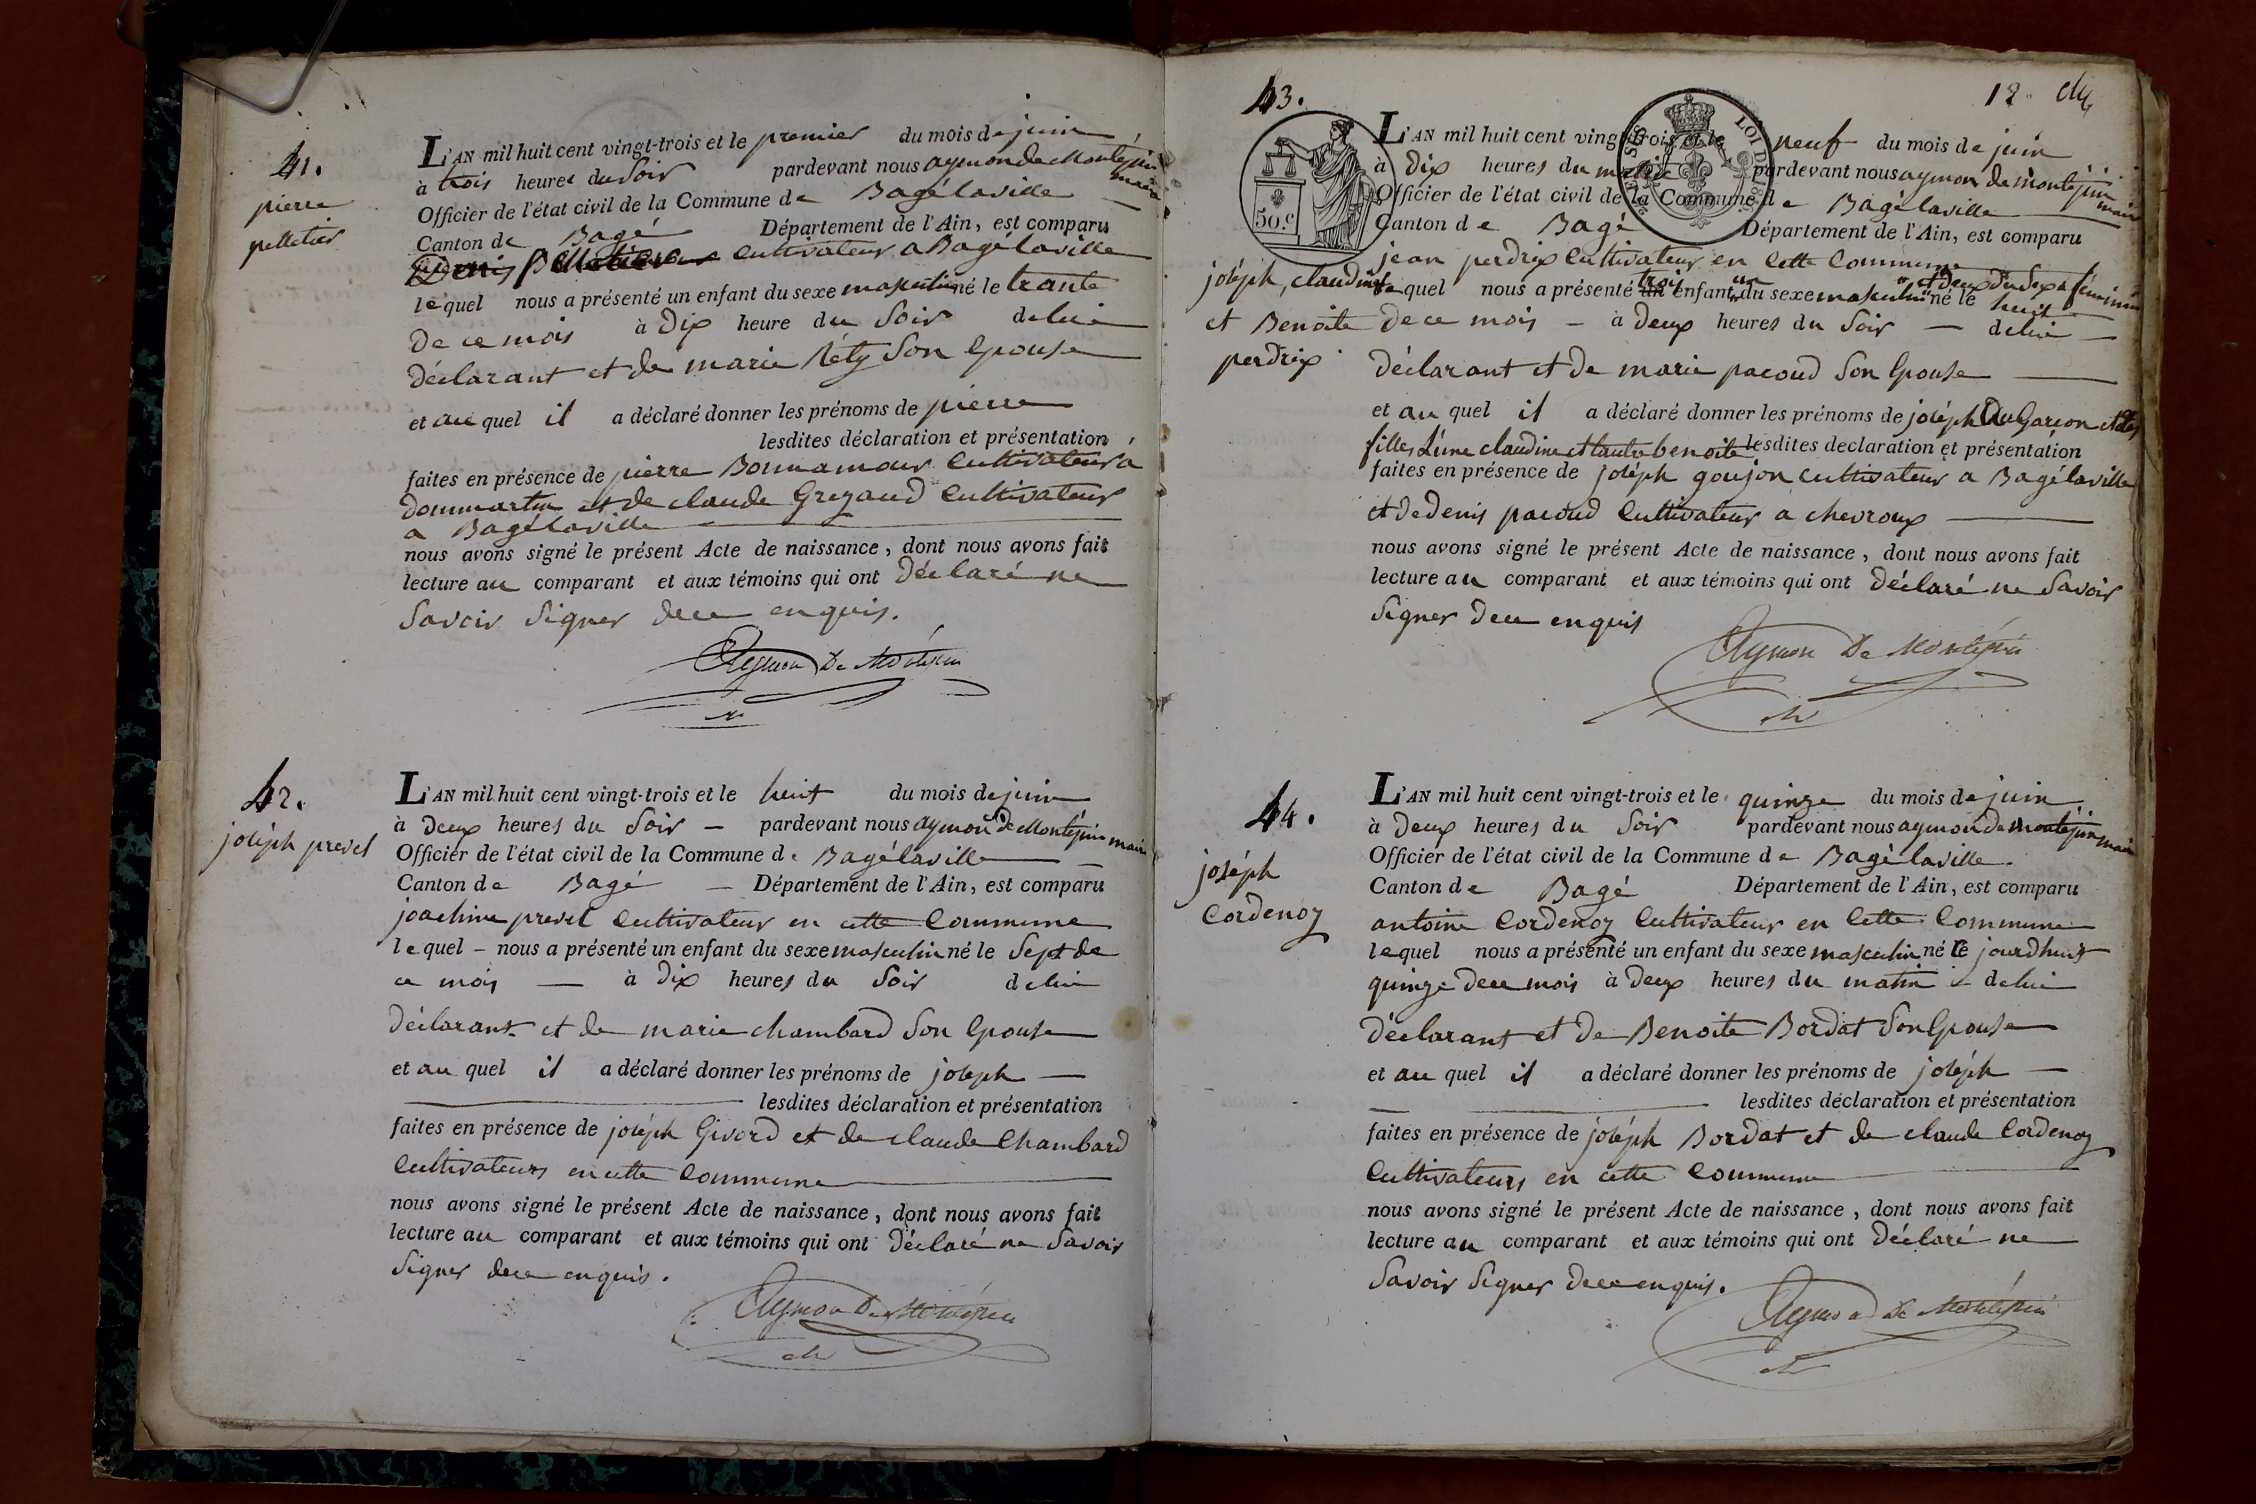 41.
pierre
pelletier
L'AN mil huit cent vingt-trois et le premier du mois de juin
à trois heures du Soir pardevant nous aymon de Montépin maire
Officier de l'état civil de la Commune de Bagélaville
Canton de Bagé Département de l'Ain, est comparu
Denis pelletier cultivateur a Bagélaville
lequel nous a présenté un enfant du sexe masculin né le trante
de ce mois à Dix heure du Soir de lui
déclarant et de marie Réty Son Epouse
et au quel il a déclaré donner les prénoms de pierre
lesdites déclaration et présentation
faites en présence de pierre Bonnamour Cultivateur à
dommartin et de claude Grezaud Cultivateur
a Bagélaville
nous avons signé le présent Acte de naissance, dont nous avons fait
lecture au comparant et aux témoins qui ont Déclaré ne
Savoir Signer de ce enquis.
Aymon De Montépin
42.
joséph prevel
L'AN mil huit cent vingt-trois et le huit du mois de juin
à Deux heures du Soir pardevant nous aymon de Montépin maire
Officier de l'état civil de la Commune de Bagélaville
Canton de Bagé Département de l'Ain, est comparu
joachim prevel Cultivateur en cette Commune
lequel nous a présenté un enfant du sexe masculin né le Sept de
ce mois à Dix heures du Soir de lui
Déclarant et de marie chambard Son Epouse
et au quel il a déclaré donner les prénoms de joséph
lesdites déclaration et présentation
faites en présence de joséph Givord et de claude Chambard
Cultivateurs en cette Commune
nous avons signé le présent Acte de naissance, dont nous avons fait
lecture au comparant et aux témoins qui ont Déclaré ne Savoir
Signer de ce enquis.
Aymon De Montépin
12
43.
50.c
LOI DE
joséph, claudine
et Benoite
perdrix
L'AN mil huit cent vingt-trois et le neuf du mois de juin
à Dix heures du matin pardevant nous aymon de montépin maire
Officier de l'état civil de la Commune de Bagélaville
Canton de Bagé Département de l'Ain, est comparu
jean perdrix Cultivateur en Cette Commune
trois un et deux du Sexe féminin
lequel nous a présenté un enfant du sexe masculin né le huit
de ce mois à Deux heures du Soir de lui
déclarant et de marie pacoud Son Epouse
et au quel il a déclaré donner les prénoms de joséph Au Garcon et des
filles L'une claudine et lautre benoite lesdites declaration et présentation
faites en présence de joséph goujon cultivateur a Bagélaville
et de denis pacoud Cultivateur a chevroux
nous avons signé le présent Acte de naissance, dont nous avons fait
lecture au comparant et aux témoins qui ont Déclaré ne Savoir
Signer de ce enquis
Aymon De Montépin
44.
joséph
Cordenoz
L'AN mil huit cent vingt-trois et le quinze du mois de juin
à Deux heures du Soir pardevant nous aymon de montépin maire
Officier de l'état civil de la Commune de Bagélaville.
Canton de Bagé Département de l'Ain, est comparu
antoine Cordenoz Cultivateur en Cette Commune
lequel nous a présenté un enfant du sexe masculin né le jourdhui
quinze de ce mois à Deux heures du matin de lui
Déclarant et de Benoite Bordat Son Epouse
et au quel il a déclaré donner les prénoms de joséph
lesdites déclaration et présentation
faites en présence de joséph Bordat et de claude Cordenoz
Cultivateurs en cette Commune
nous avons signé le présent Acte de naissance, dont nous avons fait
lecture au comparant et aux témoins qui ont Déclaré ne
Savoir Signer de ce enquis.
Aymon De Montépin